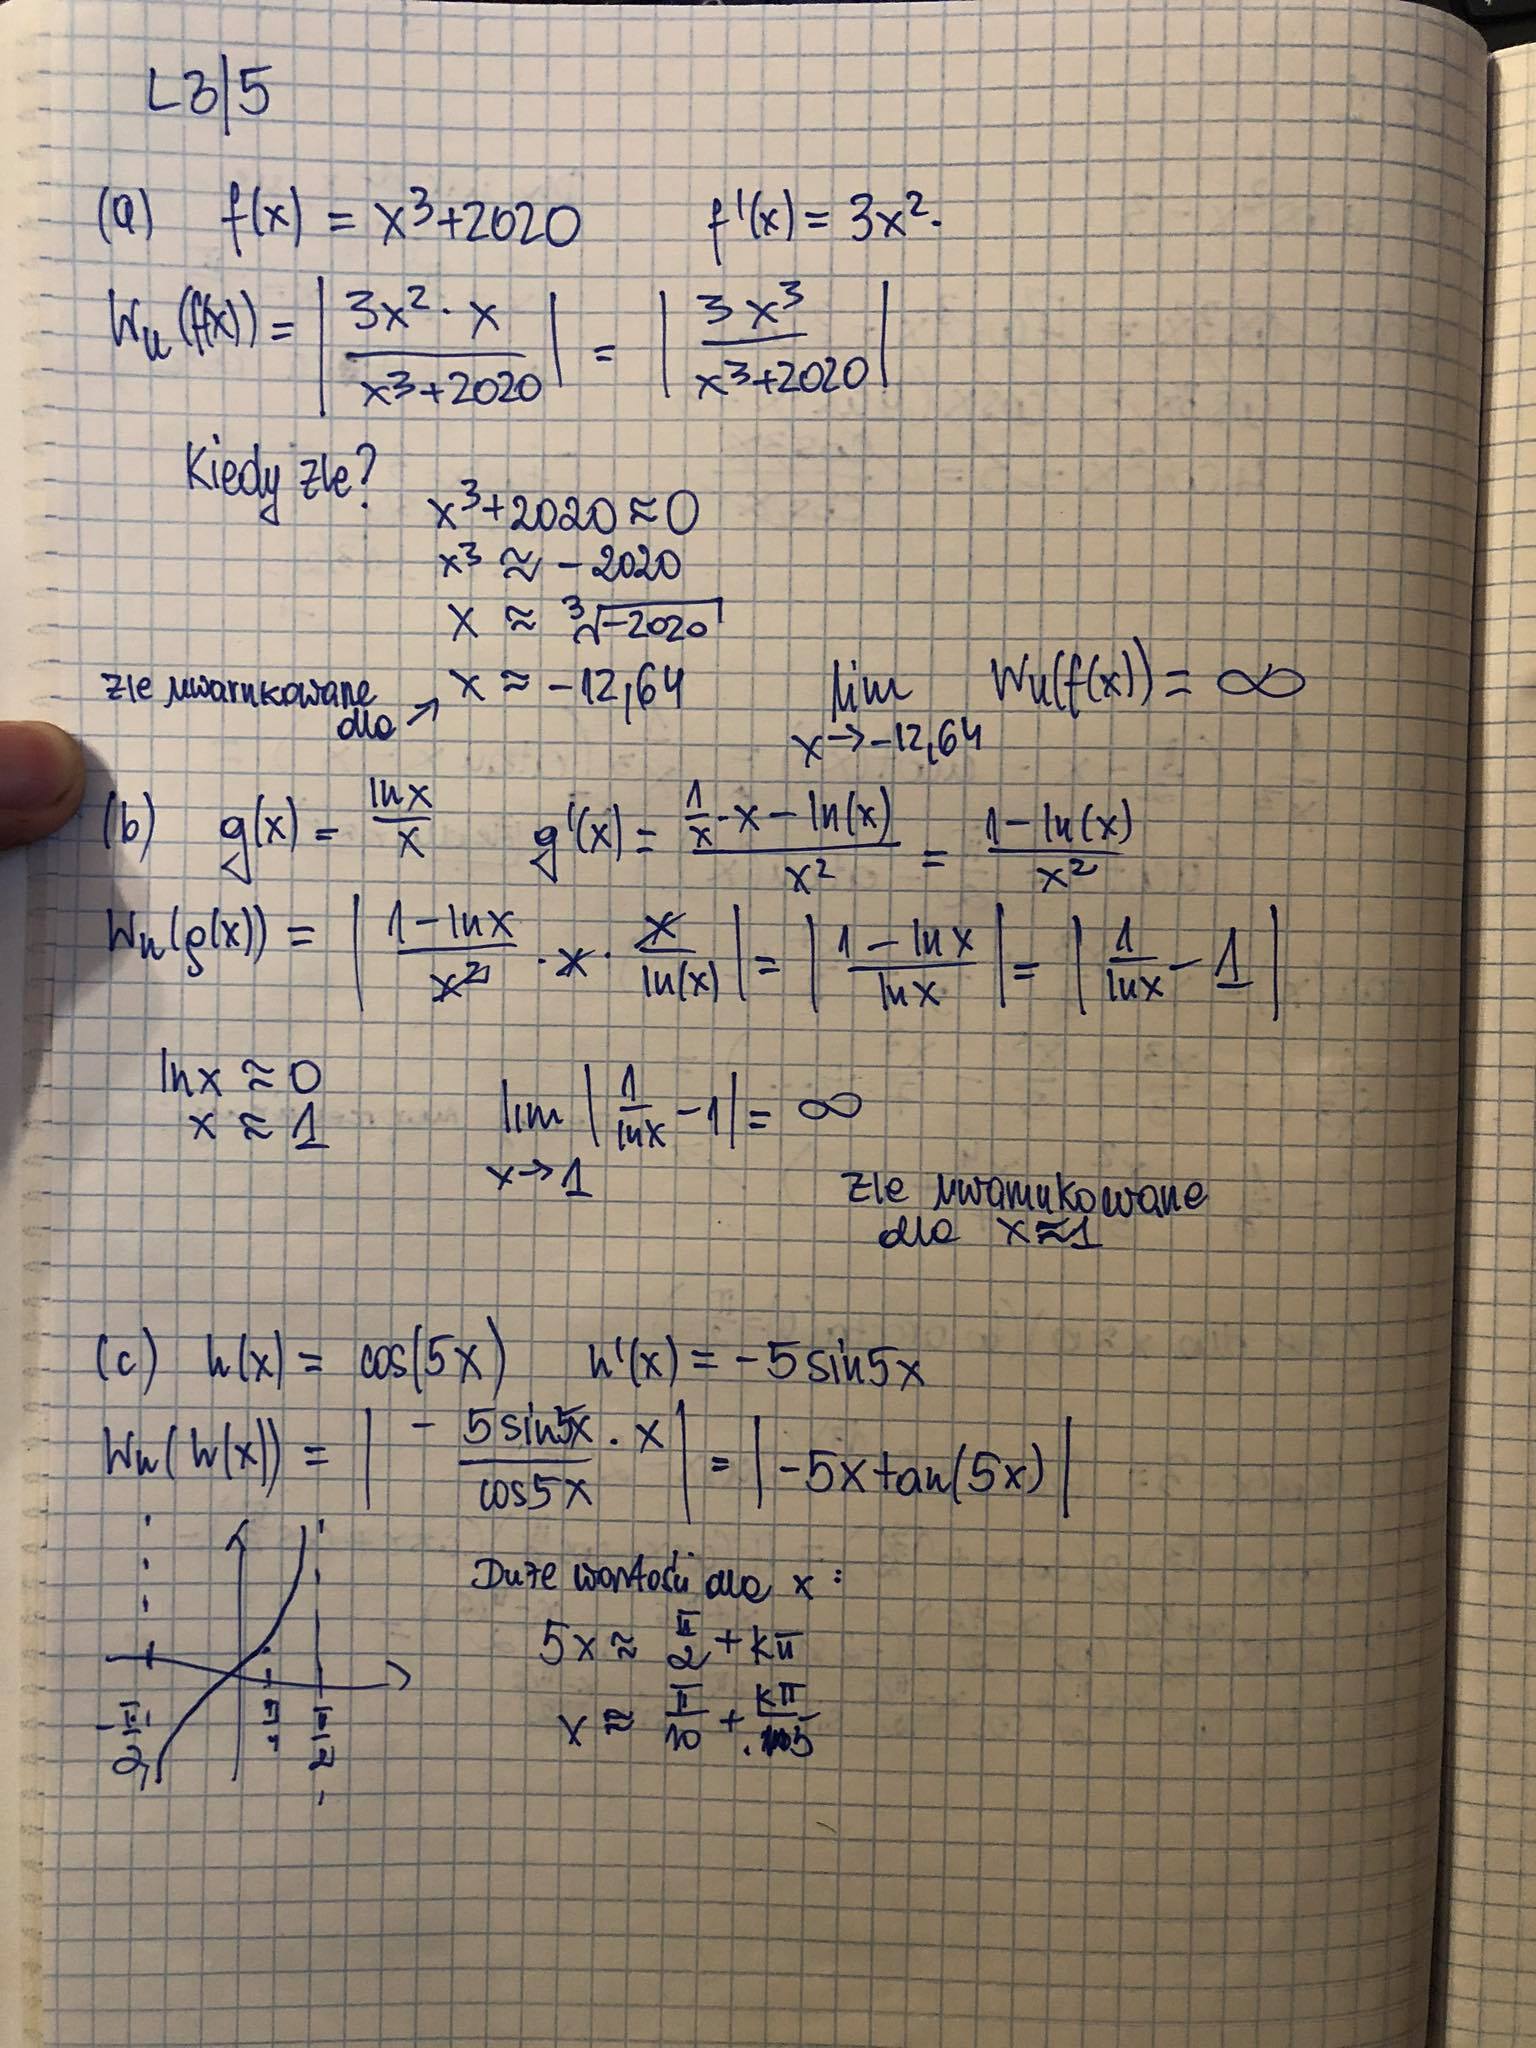 L3|5
(a) f(x) = x³+2020 f'(x) = 3x².
Wu(f(x)) = |3x²·x / x³+2020| = |3x³ / x³+2020|
Kiedy źle?
x³+2020 ≈ 0
x³ ≈ -2020
x ≈ ³√-2020
źle uwarunkowane dla → x ≈ -12,64 lim x→-12,64 Wu(f(x)) = ∞
(b) g(x) = lnx / x g'(x) = (1/x · x - ln(x)) / x² = (1-ln(x)) / x²
Wu(g(x)) = |(1-lnx) / x² · x · x / ln(x)| = |(1-lnx) / lnx| = |1/lnx - 1|
lnx ≈ 0
x ≈ 1 lim x→1 |1/lnx - 1| = ∞
źle uwarunkowane
dla x≈1
(c) h(x) = cos(5x) h'(x) = -5sin5x
Wu(h(x)) = |- 5sin5x / cos5x · x| = |-5x tan(5x)|
Duże wartości dla x:
5x ≈ π/2 + kπ
x ≈ π/10 + kπ/5
-π/2 π/2